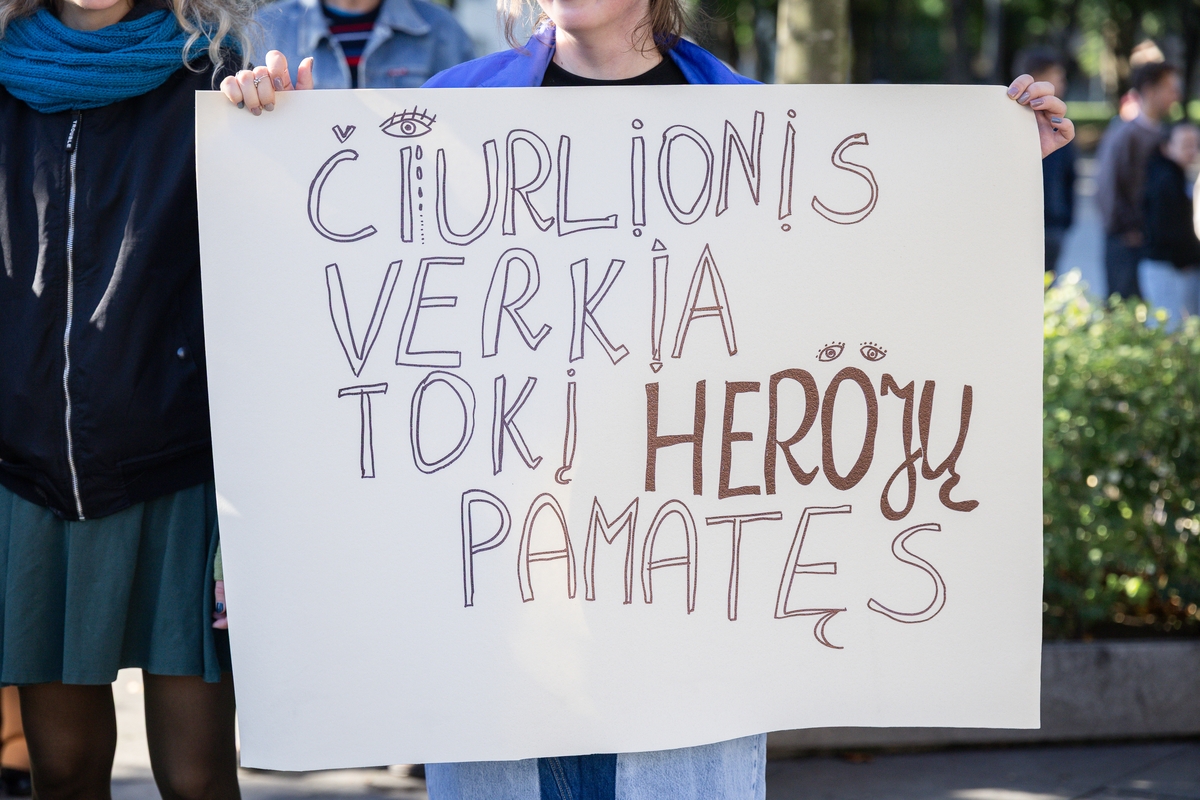 ČIURLIONIS
VERKIA
TOKĮ HEROJŲ
PAMATĘS